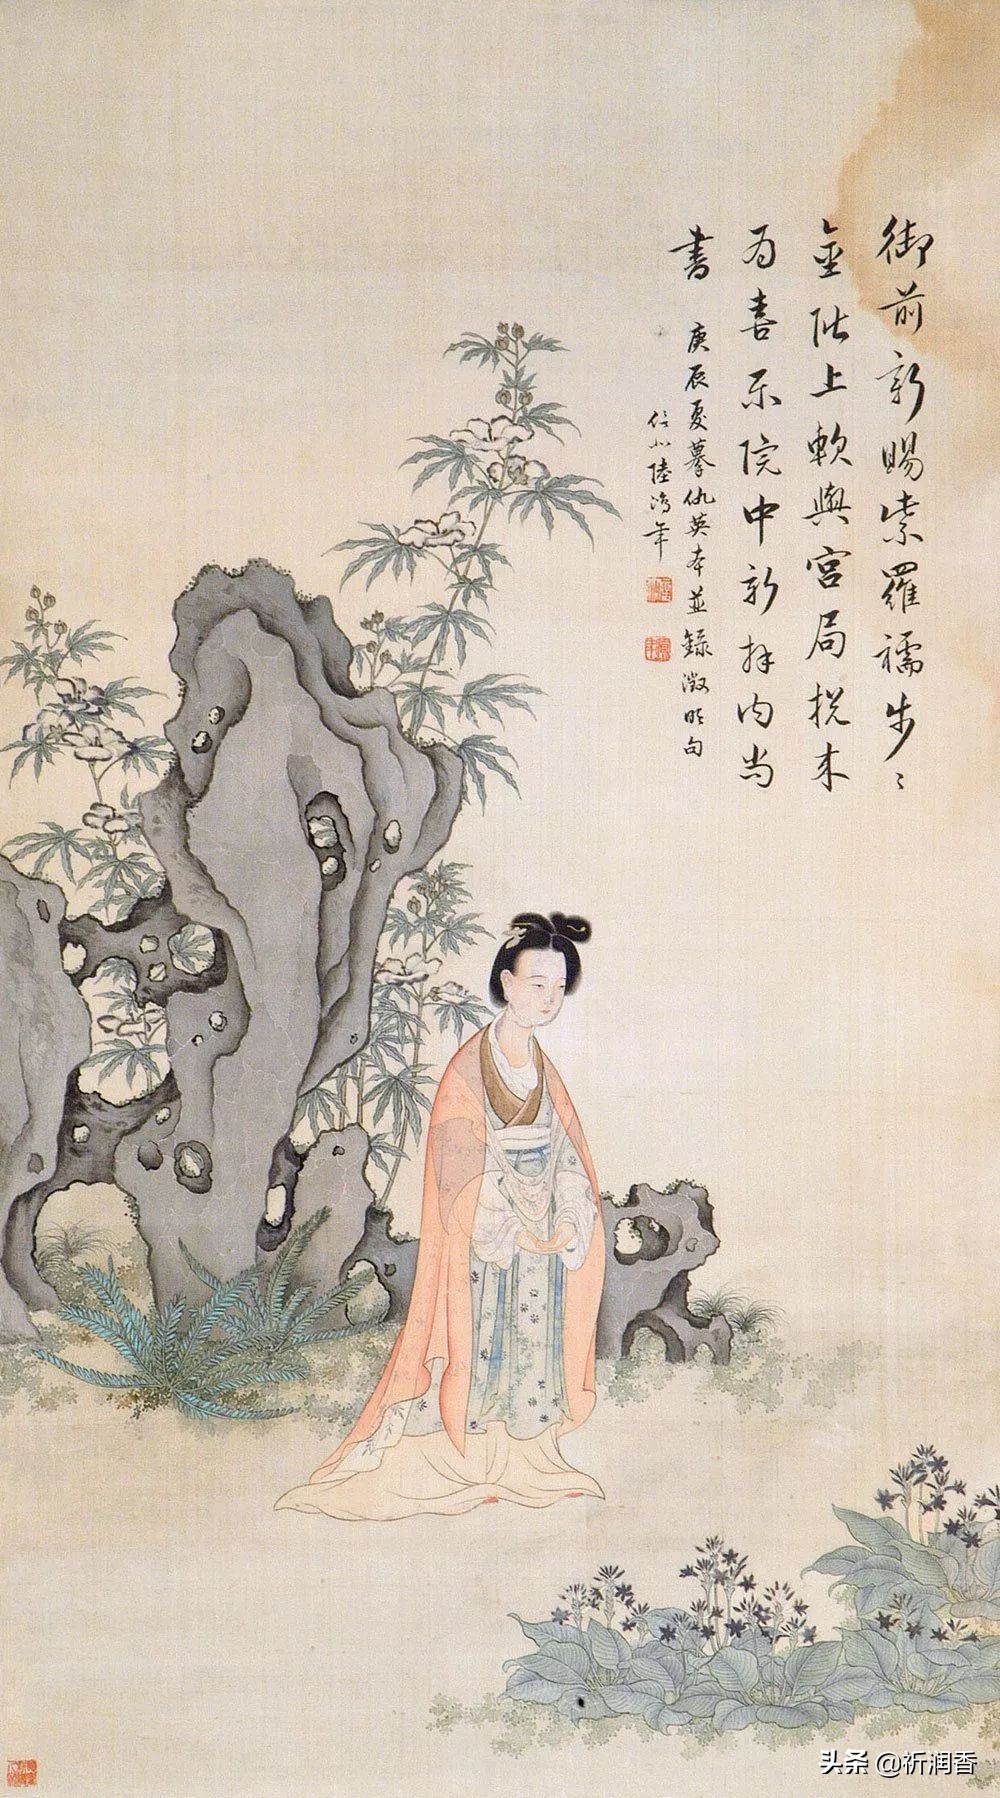 御前新賜紫羅襦步〻
金階上軟輿宮局捴来
为喜乐院中新拜内尚
書
庚辰夏摹仇英本並録徵明句
陸鴻年
头条 @祈润香